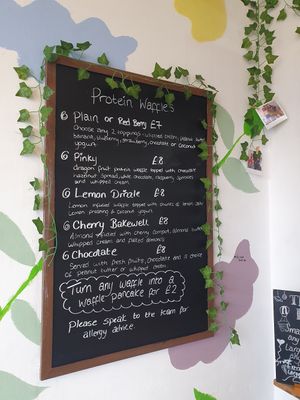 Protein Waffle's
6 Plain or Red Berry £7
Choose any 2 toppings - whipped cream, peanut butter
banana, blueberry, strawberry, chocolate or coconut
yogurt
6 Pinky £8
Dragon fruit peanut waffle topped with chocolate
hazelnut spread, white chocolate, raspberry, sprinkles
and whipped cream.
6 Lemon Drizzle £8
Lemon infused waffle topped with lemon
Lemon & coconut yogurt
6 Cherry Bakewell £8
Almond waffle with cherry compot, almond butter
whipped cream and flaked almonds
6 Chocolate £8
Served with fresh fruits, chocolate and a choice
of peanut butter or whipped cream.
Turn any waffle into a
waffle pancake for £2
Please speak to the team for
allergy advice.